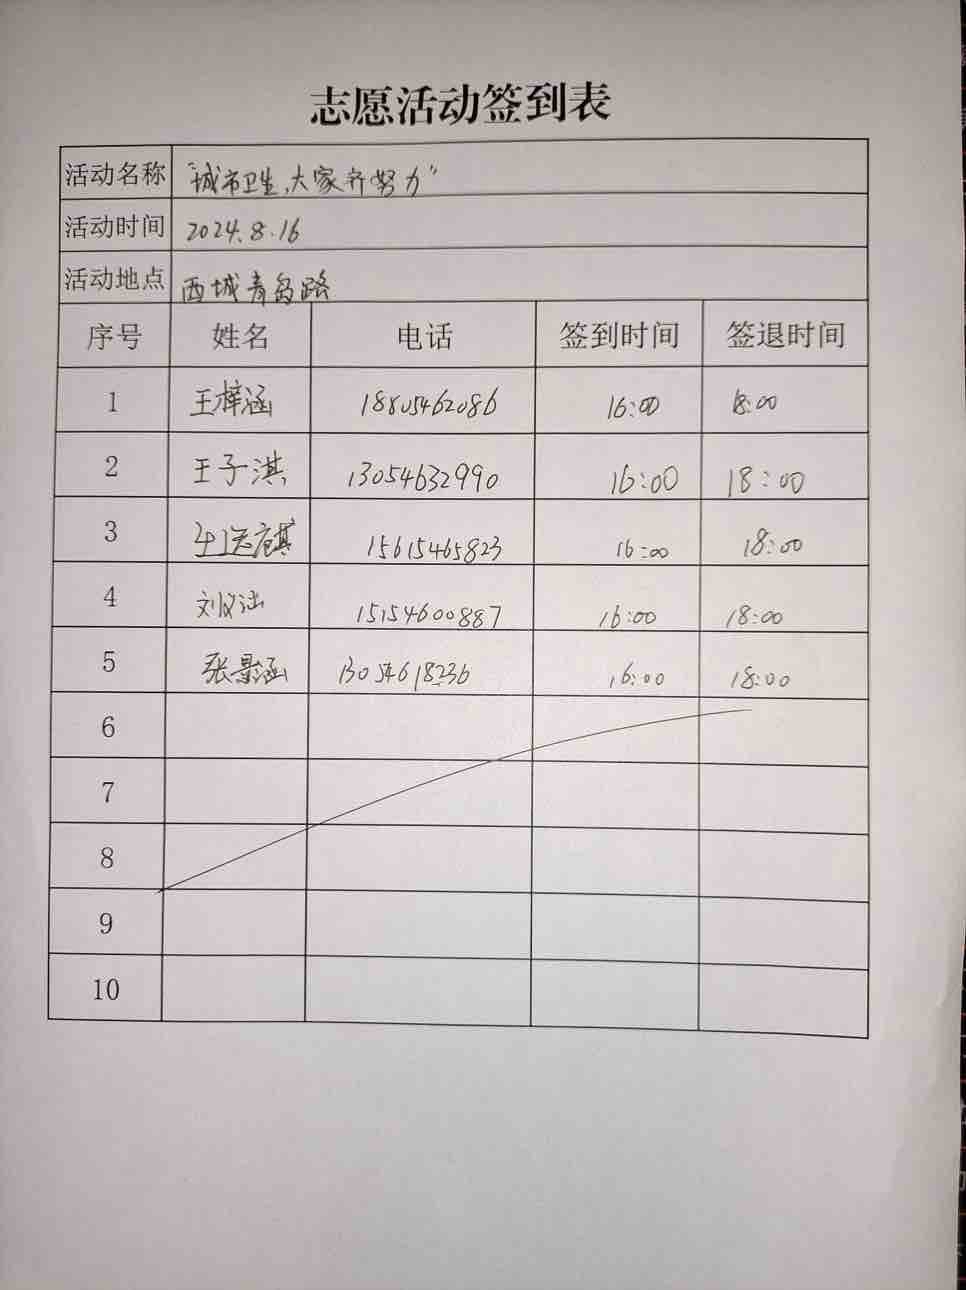 志愿活动签到表
活动名称 “城市卫生,大家齐努力”
活动时间 2024.8.16
活动地点 西城青岛路
序号 姓名 电话 签到时间 签退时间
1 王梓涵 18805462086 16:00 18:00
2 王子淇 13054632990 16:00 18:00
3 15615465823 16:00 18:00
4 刘 15154600887 16:00 18:00
5 张景涵 1305461823b 16:00 18:00
6
7
8
9
10